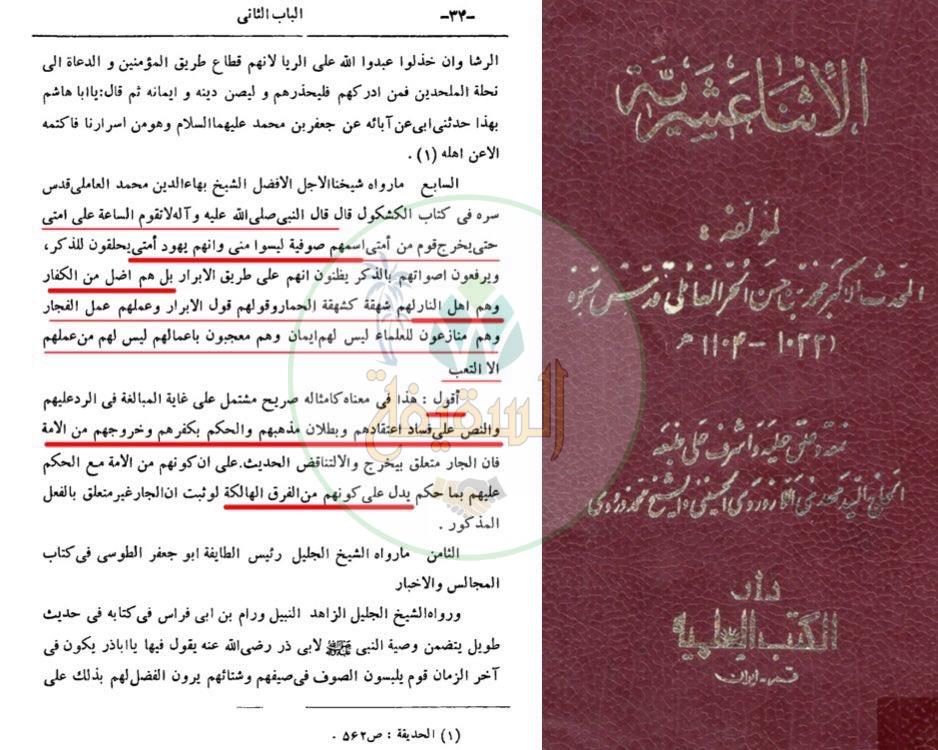 -۳۴-
الباب الثانی
الرشا وان خذلوا عبدوا الله علی الریا لانهم قطاع طریق المؤمنین و الدعاة الی
نحلة الملحدین فمن ادرکهم فلیحذرهم و لیصن دینه و ایمانه ثم قال:یاابا هاشم
بهذا حدثنی ابی عن آبائه عن جعفر بن محمد علیهما السلام وهو من اسرارنا فاکتمه
الاعن اهله (۱) .
السابع مارواه شیخنا الاجل الافضل الشیخ بهاءالدین محمد العاملی قدس
سره فی کتاب الکشکول قال قال النبی صلی الله علیه و آله لاتقوم الساعة علی امتی
حتی یخرج قوم من أمتی اسمهم صوفیة لیسوا منی وانهم یهود أمتی یحلقون للذکر،
ویرفعون اصواتهم بالذکر یظنون انهم علی طریق الابرار بل هم اضل من الکفار
وهم اهل النار لهم شهقة کشهقة الحمار وقولهم قول الابرار وعملهم عمل الفجار
وهم منازعون للعلماء لیس لهم ایمان وهم معجبون باعمالهم لیس لهم من عملهم
الا التعب
أقول : هذا فی معناه کامثاله صریح مشتمل علی غایة المبالغة فی الرد علیهم
والنص علی فساد اعتقادهم وبطلان مذهبهم والحکم بکفرهم وخروجهم من الامة
فان الجار متعلق بیخرج والالتناقض الحدیث. علی ان کونهم من الامة مع الحکم
علیهم بما حکم یدل علی کونهم من الفرق الهالکة لو ثبت ان الجار غیر متعلق بالفعل
المذکور .
الثامن مارواه الشیخ الجلیل رئیس الطایفة ابو جعفر الطوسی فی کتاب
المجالس والاخبار
ورواه الشیخ الجلیل الزاهد النبیل ورام بن ابی فراس فی کتابه فی حدیث
طویل یتضمن وصیة النبی ﷺ لابی ذر رضی الله عنه یقول فیها یااباذر یکون فی
آخر الزمان قوم یلبسون الصوف فی صیفهم وشتائهم یرون الفضل لهم بذلک علی
(۱) الحدیقة : ص۵۶۲ .
السقيفة
الأثنا عشرية
لمؤلفه :
المحدث الاکبر محمد بن الحسن الحر العاملی قدس سره
(۱۰۳۳ - ۱۱۰۴) هـ
نمقه وعلق علیه واشرف علی طبعه
دار
الکتب العلمیه
قم - ایران